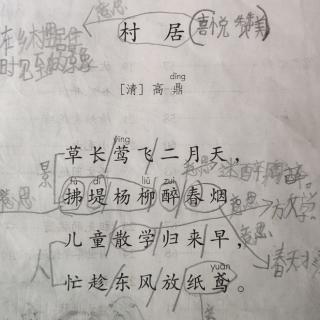 意思
村居
喜悦 赞美
dǐng
[清]高鼎
yīng
草长莺飞二月天，
fú dī liǔ zuì
拂堤杨柳醉春烟。
儿童散学归来早，
yuān
忙趁东风放纸鸢。
景
人
意思
意思
放学
意思